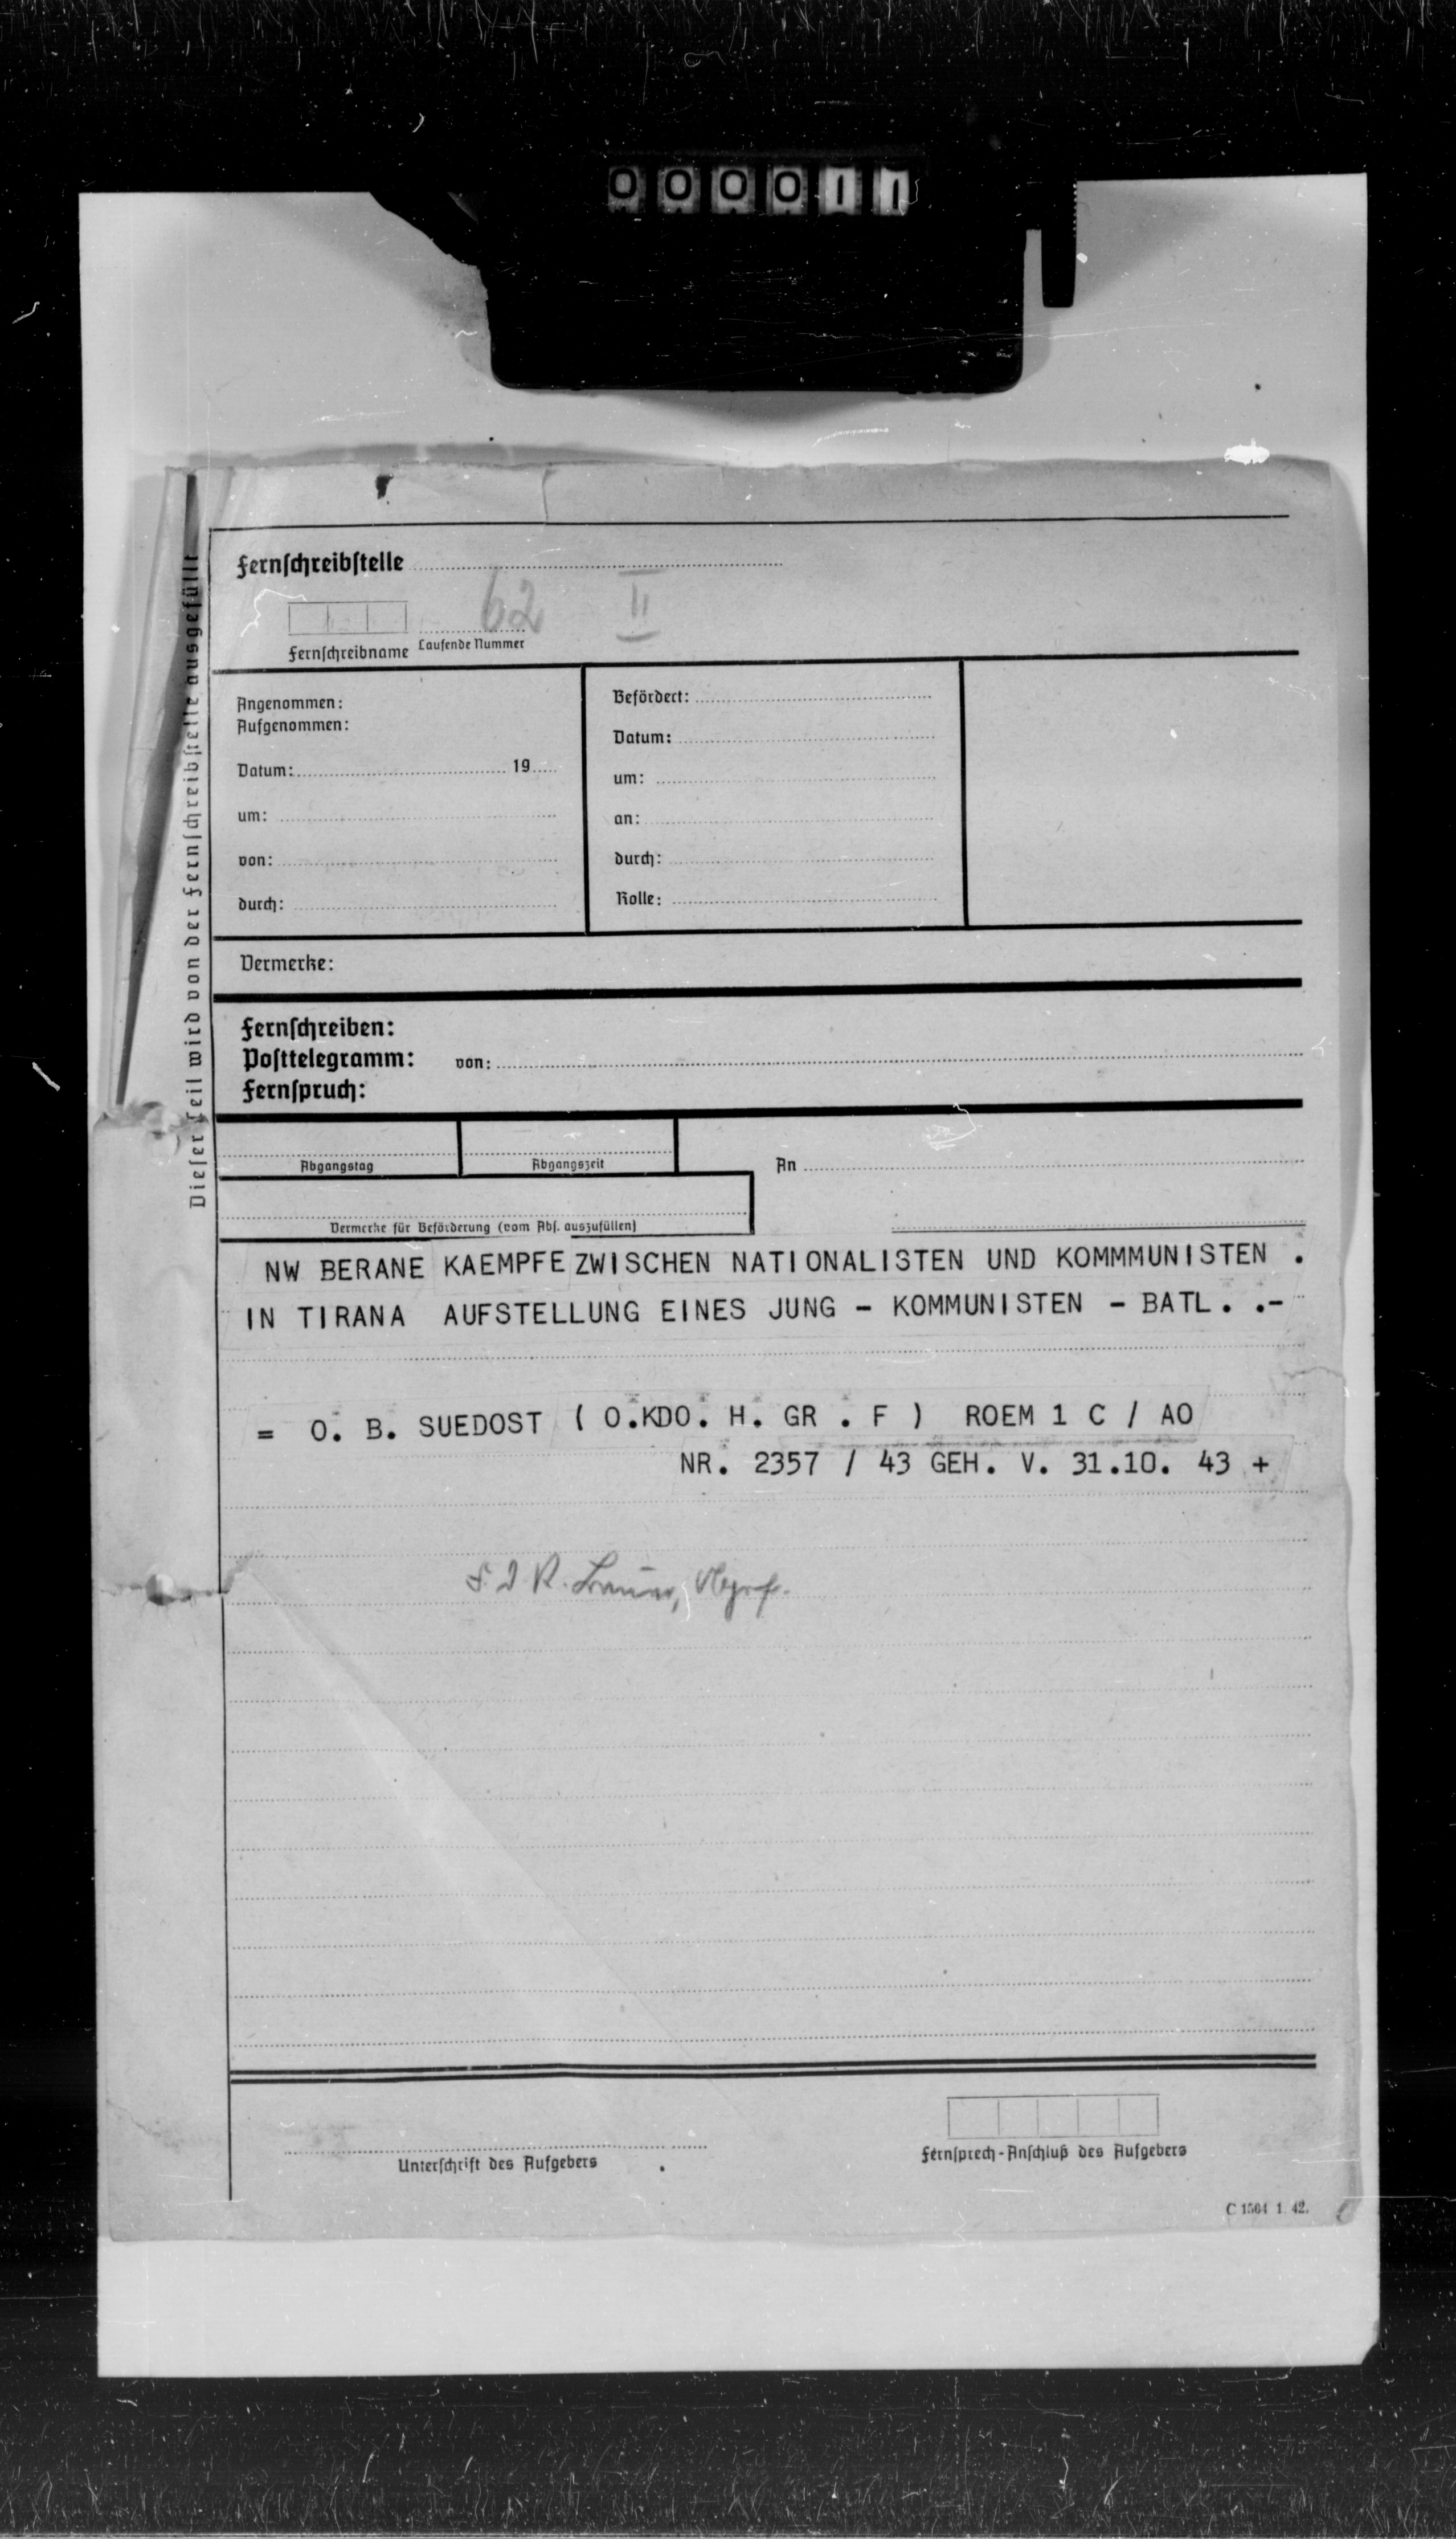 000011
Fernschreibstelle
62 II
Fernschreibname Laufende Nummer
Dieser Teil wird von der Fernschreibstelle ausgefüllt
Angenommen:
Aufgenommen:
Datum: 19
um:
von:
durch:
Befördert:
Datum:
um:
an:
durch:
Rolle:
Vermerke:
Fernschreiben:
Posttelegramm: von:
Fernspruch:
Abgangstag
Abgangszeit
An
Vermerke für Beförderung (vom Abs. auszufüllen)
NW BERANE KAEMPFE ZWISCHEN NATIONALISTEN UND KOMMMUNISTEN .
IN TIRANA AUFSTELLUNG EINES JUNG - KOMMUNISTEN - BATL. .-
= O. B. SUEDOST ( O.KDO. H. GR . F ) ROEM 1 C / AO
NR. 2357 / 43 GEH. V. 31.10. 43 +
F. d. R.
Unterschrift des Aufgebers
Fernsprech-Anschluß des Aufgebers
C 1564 1. 42.